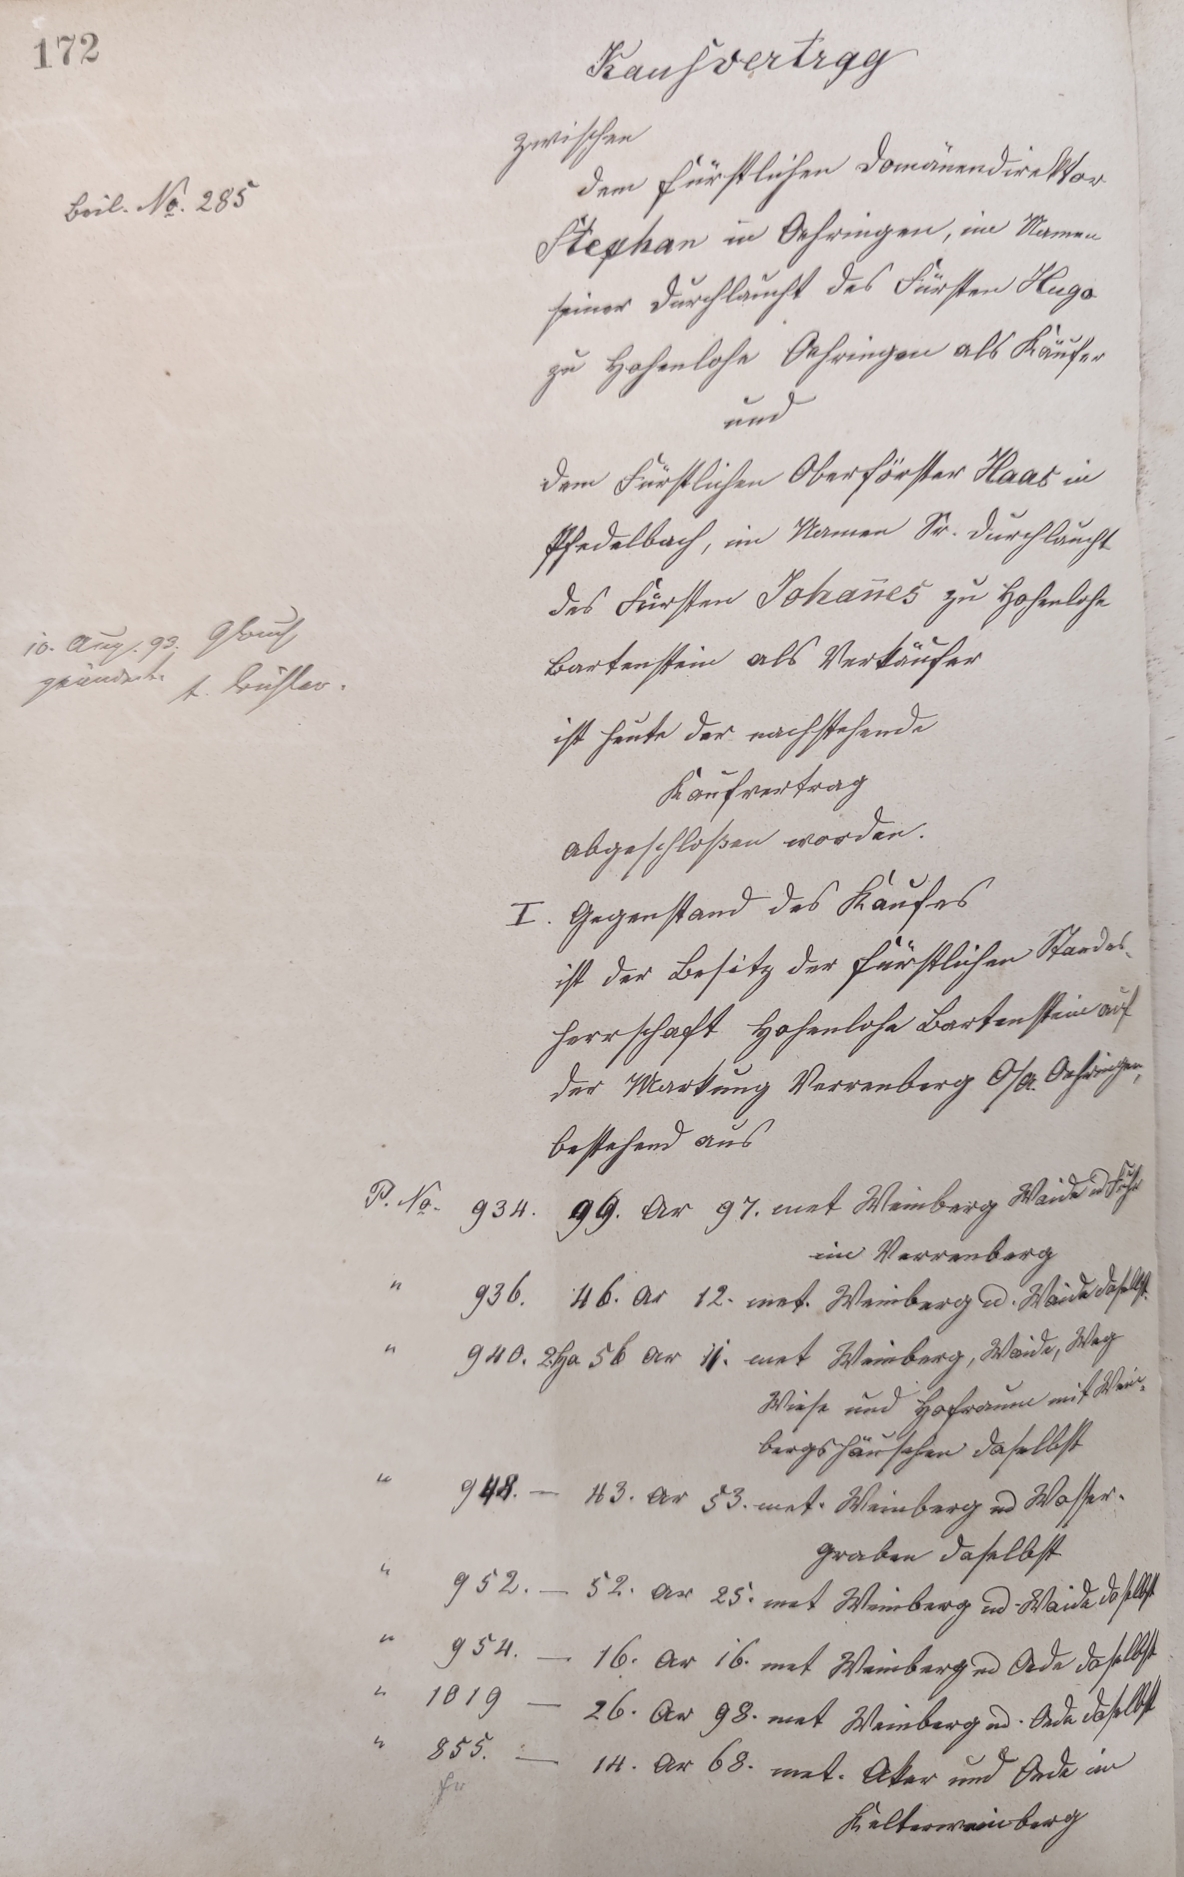 172
Kaufvertrag
zwischen
dem fürstlichen Domänendirektor
Beil. No. 285
Stephan in Oehringen, im Namen
seiner Durchlaucht des Fürsten Hugo
zu Hohenlohe Oehringen als Käufer
und
dem Fürstlichen Oberförster Haas in
Pfedelbach, im Namen Sr. Durchlaucht
des Fürsten Johannes zu Hohenlohe
Bartenstein als Verkäufer
10. Aug. 93.
geändert.
ist heute der nachstehende
Kaufvertrag
abgeschloßen worden.
I. Gegenstand des Kaufes
ist der Besitz der fürstlichen Standes-
herrschaft Hohenlohe Bartenstein auf
der Markung Verrenberg O/A. Oehringen,
bestehend aus
P. No. 934. 99. Ar 97. met Weinberg Waide
im Verrenberg
" 936. 46. Ar 12. met. Weinberg u. Waide daselbst.
" 940. 2 Ha 56 Ar 11. met Weinberg, Waide, Weg
Wiese und Hofraum mit Wein-
bergshäuschen daselbst
" 948. — 43. Ar 53. met. Weinberg ud Wasser-
graben daselbst
" 952. — 52. Ar 25. met Weinberg ud. Waide daselbst
" 954. — 16. Ar 16. met Weinberg ud Oede daselbst
" 1019 — 26. Ar 98. met Weinberg ud. Oede daselbst
" 855. — 14. Ar 68. met. Aker und Oede im
Kelterweinberg